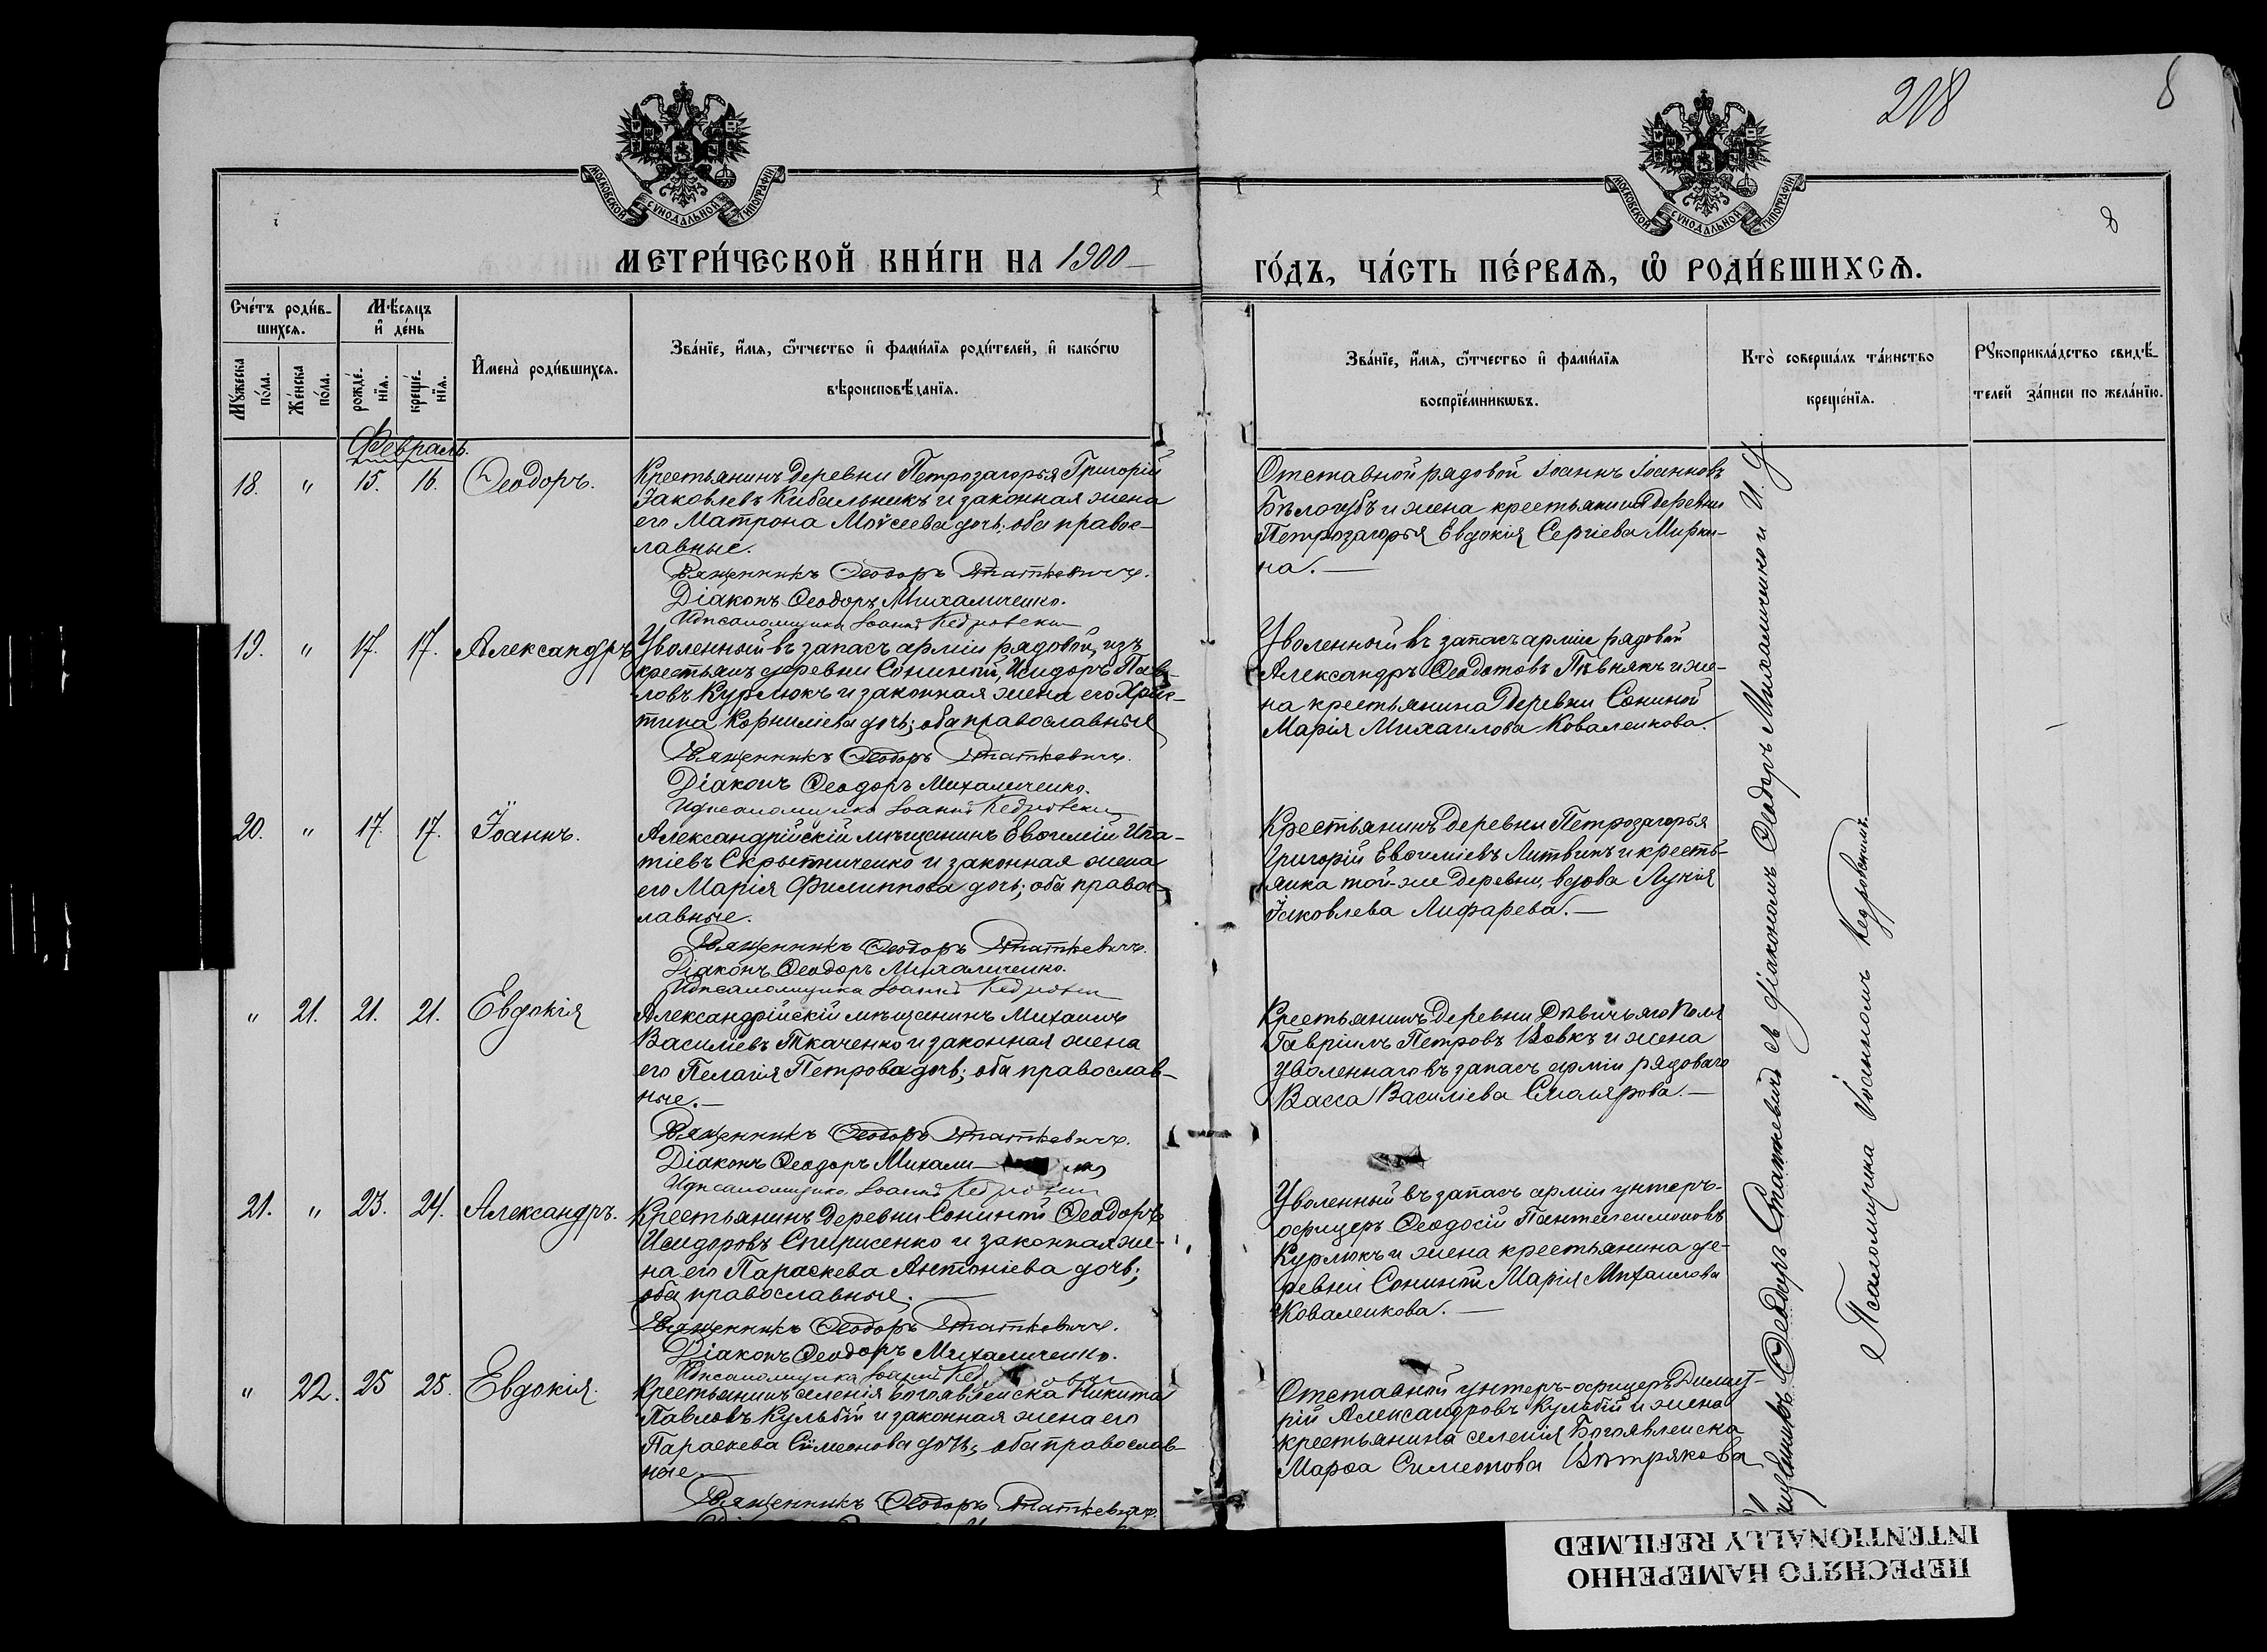 218
8
МОСКОВСКОЙ СУНОДАЛЬНОЙ ТИПОГРАФІИ
МОСКОВСКОЙ СУНОДАЛЬНОЙ ТИПОГРАФІИ
8
МЕТРИ́ЧЕСКОЙ КНИ́ГИ НА 1900
ГО́ДЪ, ЧА́СТЬ ПЕ́РВАѦ, Ѡ҆ РОДИ́ВШИХСѦ.
Сче́тъ роди́в-
шихсѧ.
Мѣ́сѧцъ
и҆ де́нь
Мꙋ́жеска по́ла.
Же́нска по́ла.
рожде́-нїѧ.
креще́-нїѧ.
И҆мена̀ роди́вшихсѧ.
Зва́нїе, и҆́мѧ, ѻ҆́тчество и҆ фами́лїѧ роди́телей, и҆ како́гѡ
вѣроисповѣ́данїѧ.
Зва́нїе, и҆́мѧ, ѻ҆́тчество и҆ фами́лїѧ
воспрїе́мникѡвъ.
Кто̀ соверша́лъ та́инство
креще́нїѧ.
Рꙋкоприкла́дство свидѣ́-
телей за́писи по жела́нїю.
Февраль.
18. " 15. 16. Ѳеодоръ.
Крестьянинъ деревни Петрозагорья Григорій
Іаковлевъ Кибальникъ и законная жена
его Матрона Моѵсеева дочь; оба правос-
лавные.
Священникъ Ѳеодоръ Статкевичъ.
Діаконъ Ѳеодоръ Михаличенко.
И д псаломщика Іоаннъ Кедровскій
Отставной рядовой Іоаннъ Іоанновъ
Бѣлогубъ и жена крестьянина деревни
Петрозагорья Евдокія Сергіева Мирки-
на.—
19. " 17. 17. Александръ
Уволенный въ запасъ арміи рядовой, изъ
крестьянъ деревни Сониной, Исидоръ Пав-
ловъ Курлюкъ и законная жена его Хрис-
тина Корниліева дочь; оба православные
Священникъ Ѳеодоръ Статкевичъ.
Діаконъ Ѳеодоръ Михаличенко.
И д псаломщика Іоаннъ Кедровскій
Уволенной въ запасъ арміи рядовой
Александръ Ѳеодотовъ Пѣвнякъ и же-
на крестьянина деревни Сониной
Марія Михаилова Коваленкова.
20. " 17. 17. Іоаннъ.
Александрійскій мѣщанинъ Евѳимій Ипа-
тіевъ Скрыпниченко и законная жена
его Марія Филиппова дочь; оба правос-
лавные.
Священникъ Ѳеодоръ Статкевичъ.
Діаконъ Ѳеодоръ Михаличенко.
И д псаломщика Іоаннъ Кедровскій
Крестьянинъ деревни Петрозагорья
Григорій Евѳиміевъ Литвинъ и кресть-
янка той-же деревни, вдова Лукія
Іаковлева Лифарева.—
" 21. 21. 21. Евдокія
Александрійскій мѣщанинъ Михаилъ
Василіевъ Ткаченко и законная жена
его Пелагія Петрова дочь; оба православ-
ные.—
Священникъ Ѳеодоръ Статкевичъ.
Діаконъ Ѳеодоръ Михали
И д псаломщика Іоаннъ Кедровскій
Крестьянинъ деревни Дѣвичьяго Поля
Гавріилъ Петровъ Вовкъ и жена
уволеннаго въ запасъ арміи рядоваго
Васса Василіева Смолярова.—
21. " 23. 24. Александръ.
Крестьянинъ деревни Сониной Ѳеодоръ
Исидоровъ Спирисенко и законная же-
на его Параскева Антоніева дочь;
оба православные.—
Священникъ Ѳеодоръ Статкевичъ.
Діаконъ Ѳеодоръ Михаличенко.
И д псаломщика Іоаннъ
Уволенный въ запасъ арміи унтеръ-
офицеръ Ѳеодосій Пантелеимоновъ
Курлюкъ и жена крестьянина де-
ревни Сониной Марія Михаилова
Коваленкова.—
" 22. 25 25. Евдокія.
Крестьянинъ селенія Богоявленска Никита
Павловъ Кульбій и законная жена его
Параскева Сѵмеонова дочь; оба православ-
ные.—
Священникъ Ѳеодоръ Статкевичъ.
Отставной унтеръ-офицеръ Димит-
рій Александровъ Кульбій и жена
крестьянина селенія Богоявленска
Марѳа Симеонова Вѣтрякова
Священникъ Ѳеодоръ Статкевичъ съ діакономъ Ѳеодоръ Михаличенко и И. д.
Псаломщика Іоанномъ Кедровскимъ.—
ПЕРЕСНЯТО НАМЕРЕННО
INTENTIONALLY REFILMED